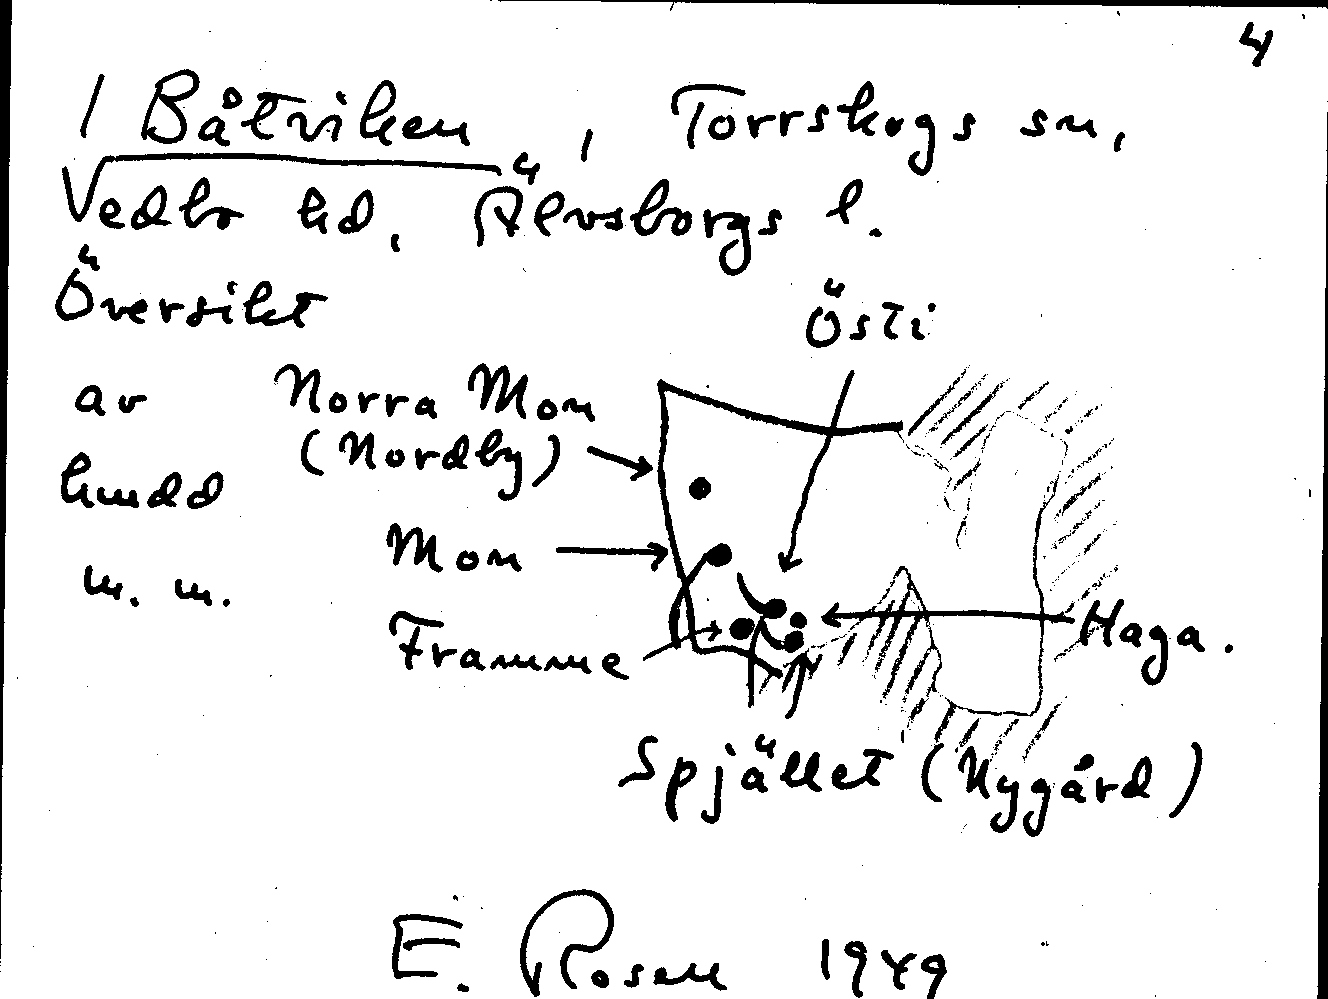 4
1 Båtviken, Torrskogs sn,
Vedbo hd, Älvsborgs l.
Översikt
Östi
av
Norra Mon
(Nordby)
hmdd
Mon
m. m.
Framme
Haga.
Spjället (Nygård)
E. Rosen 1949